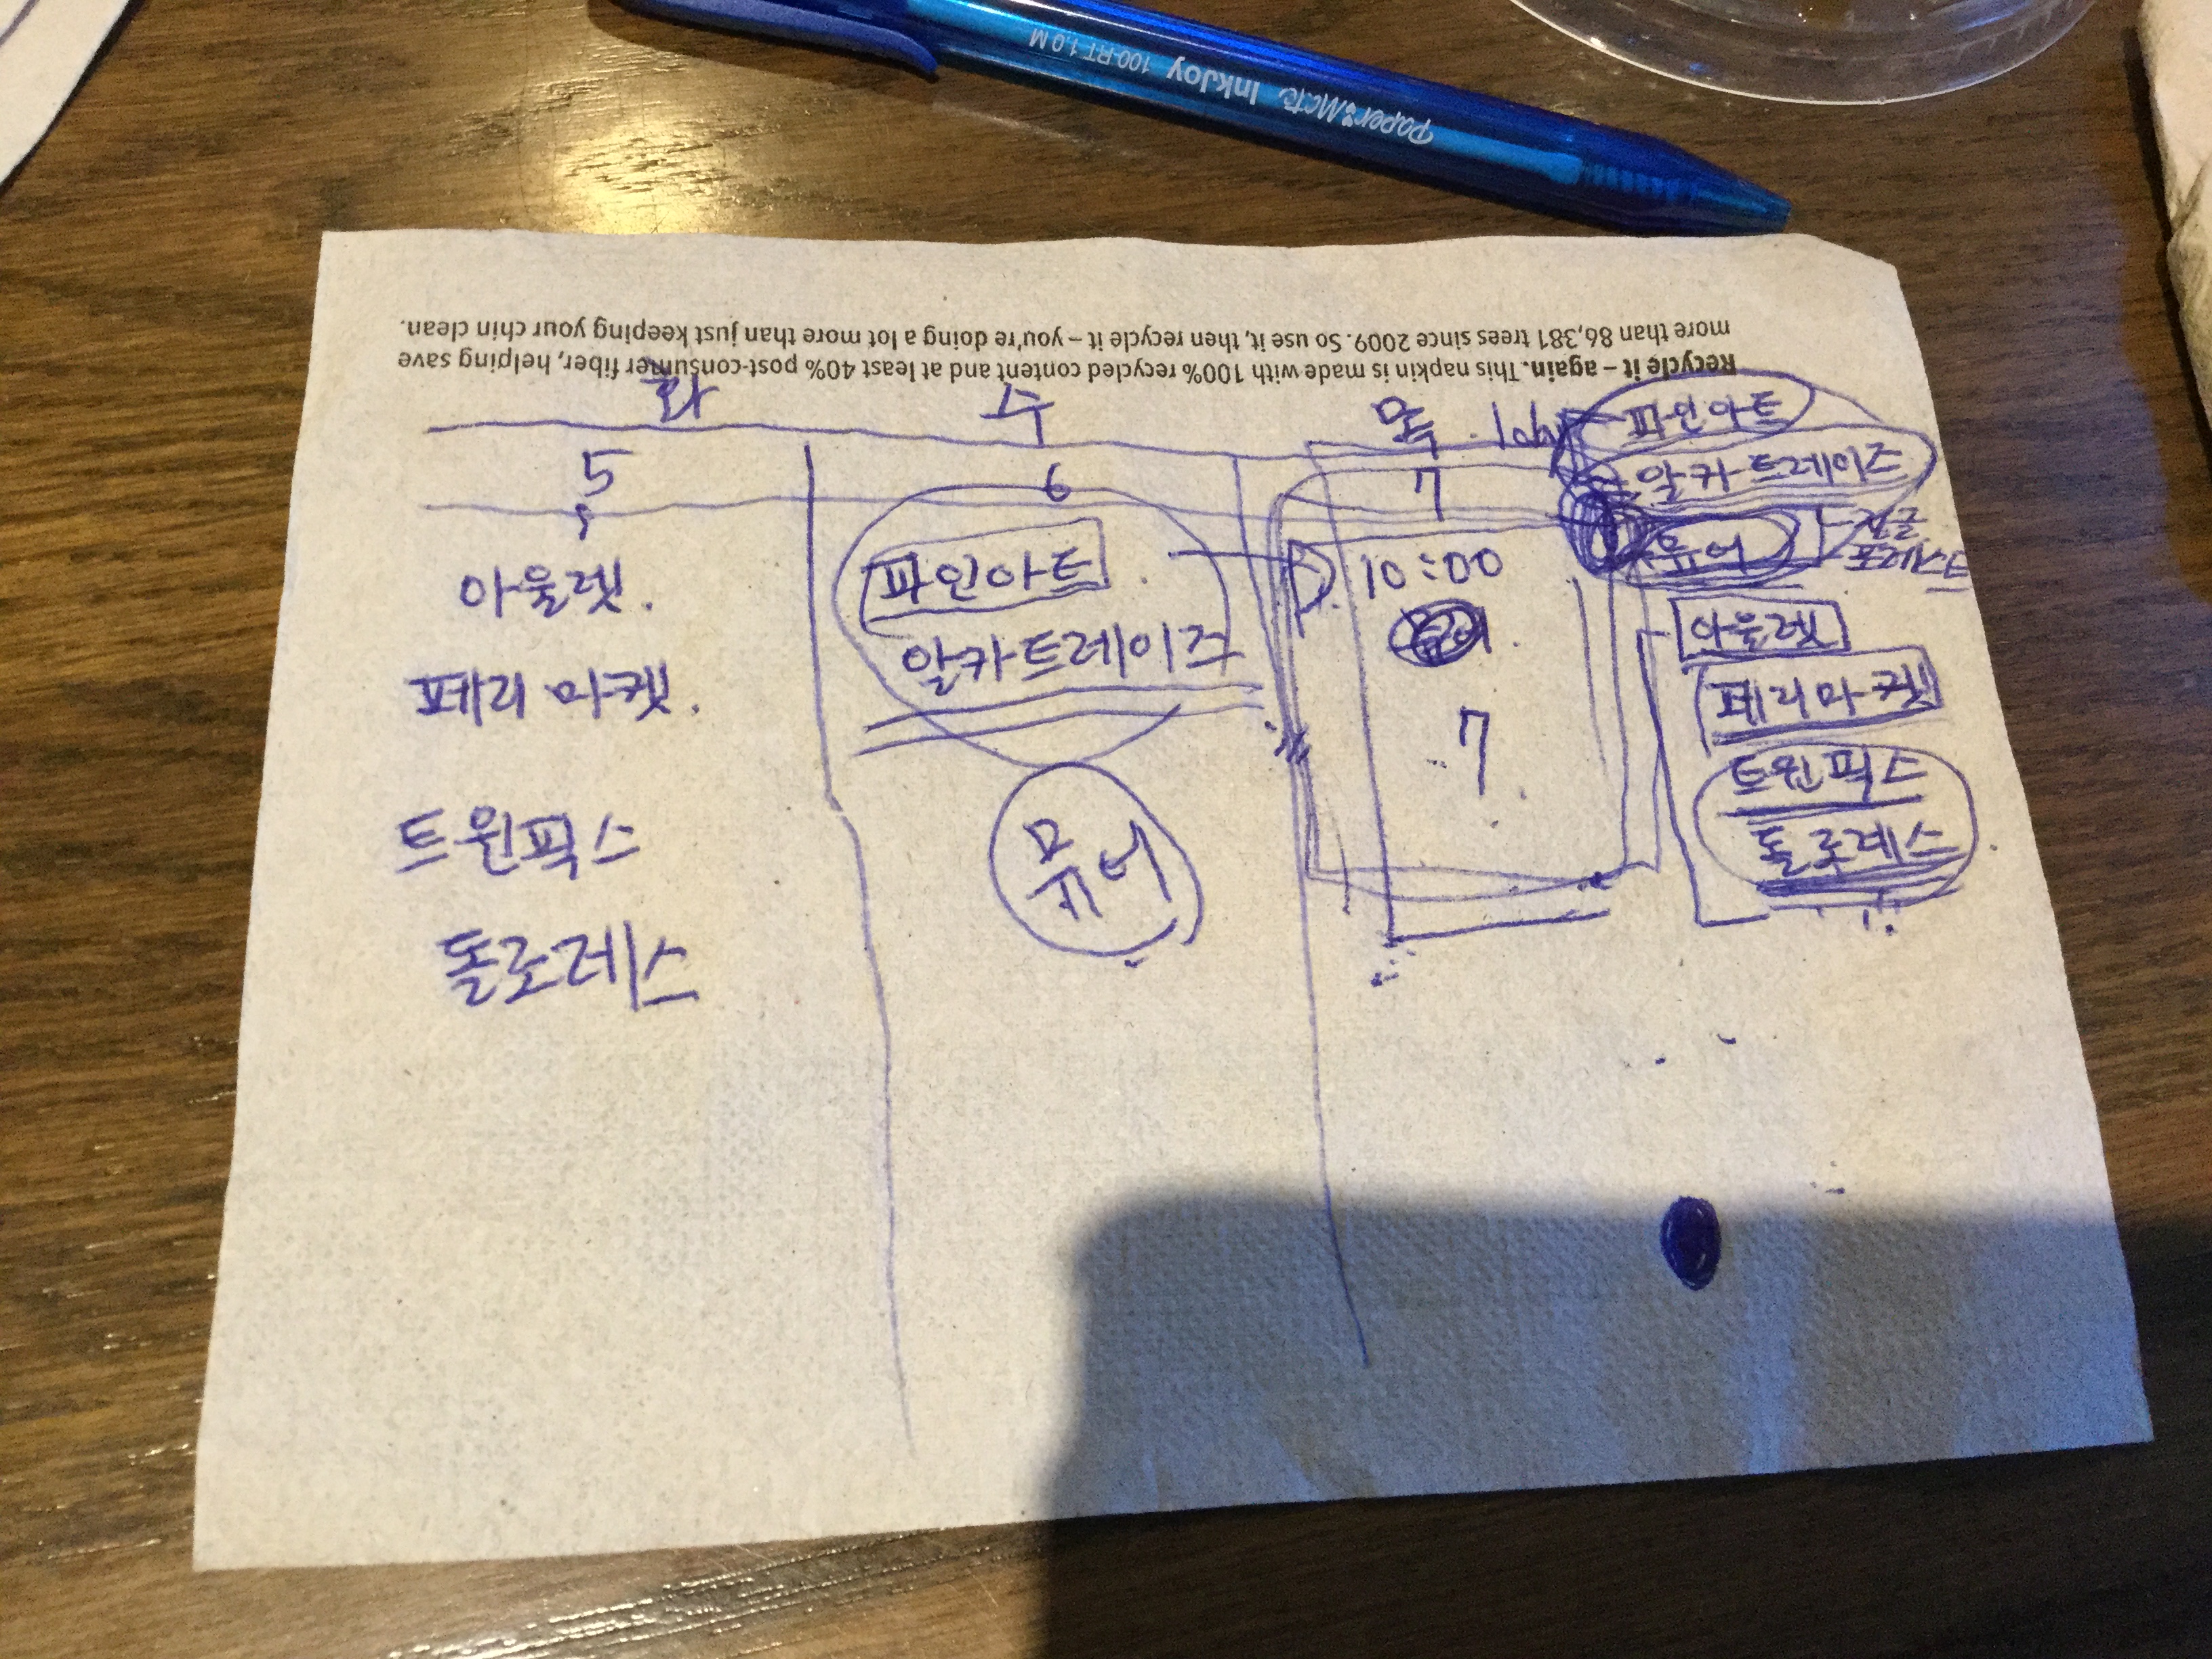 Paper Mate InkJoy 100-RT 1.0 M
Recycle it – again. This napkin is made with 100% recycled content and at least 40% post-consumer fiber, helping save
more than 86,381 trees since 2009. So use it, then recycle it – you're doing a lot more than just keeping your chin clean.
화 수 목
5 6 7
아울렛.
페리마켓.
트윈픽스
돌로레스
파인아트
알카트레이즈
뮤어
10:00
7
파인아트
알카트레이즈
뮤어
포레스트
아울렛
페리마켓
트윈픽스
돌로레스